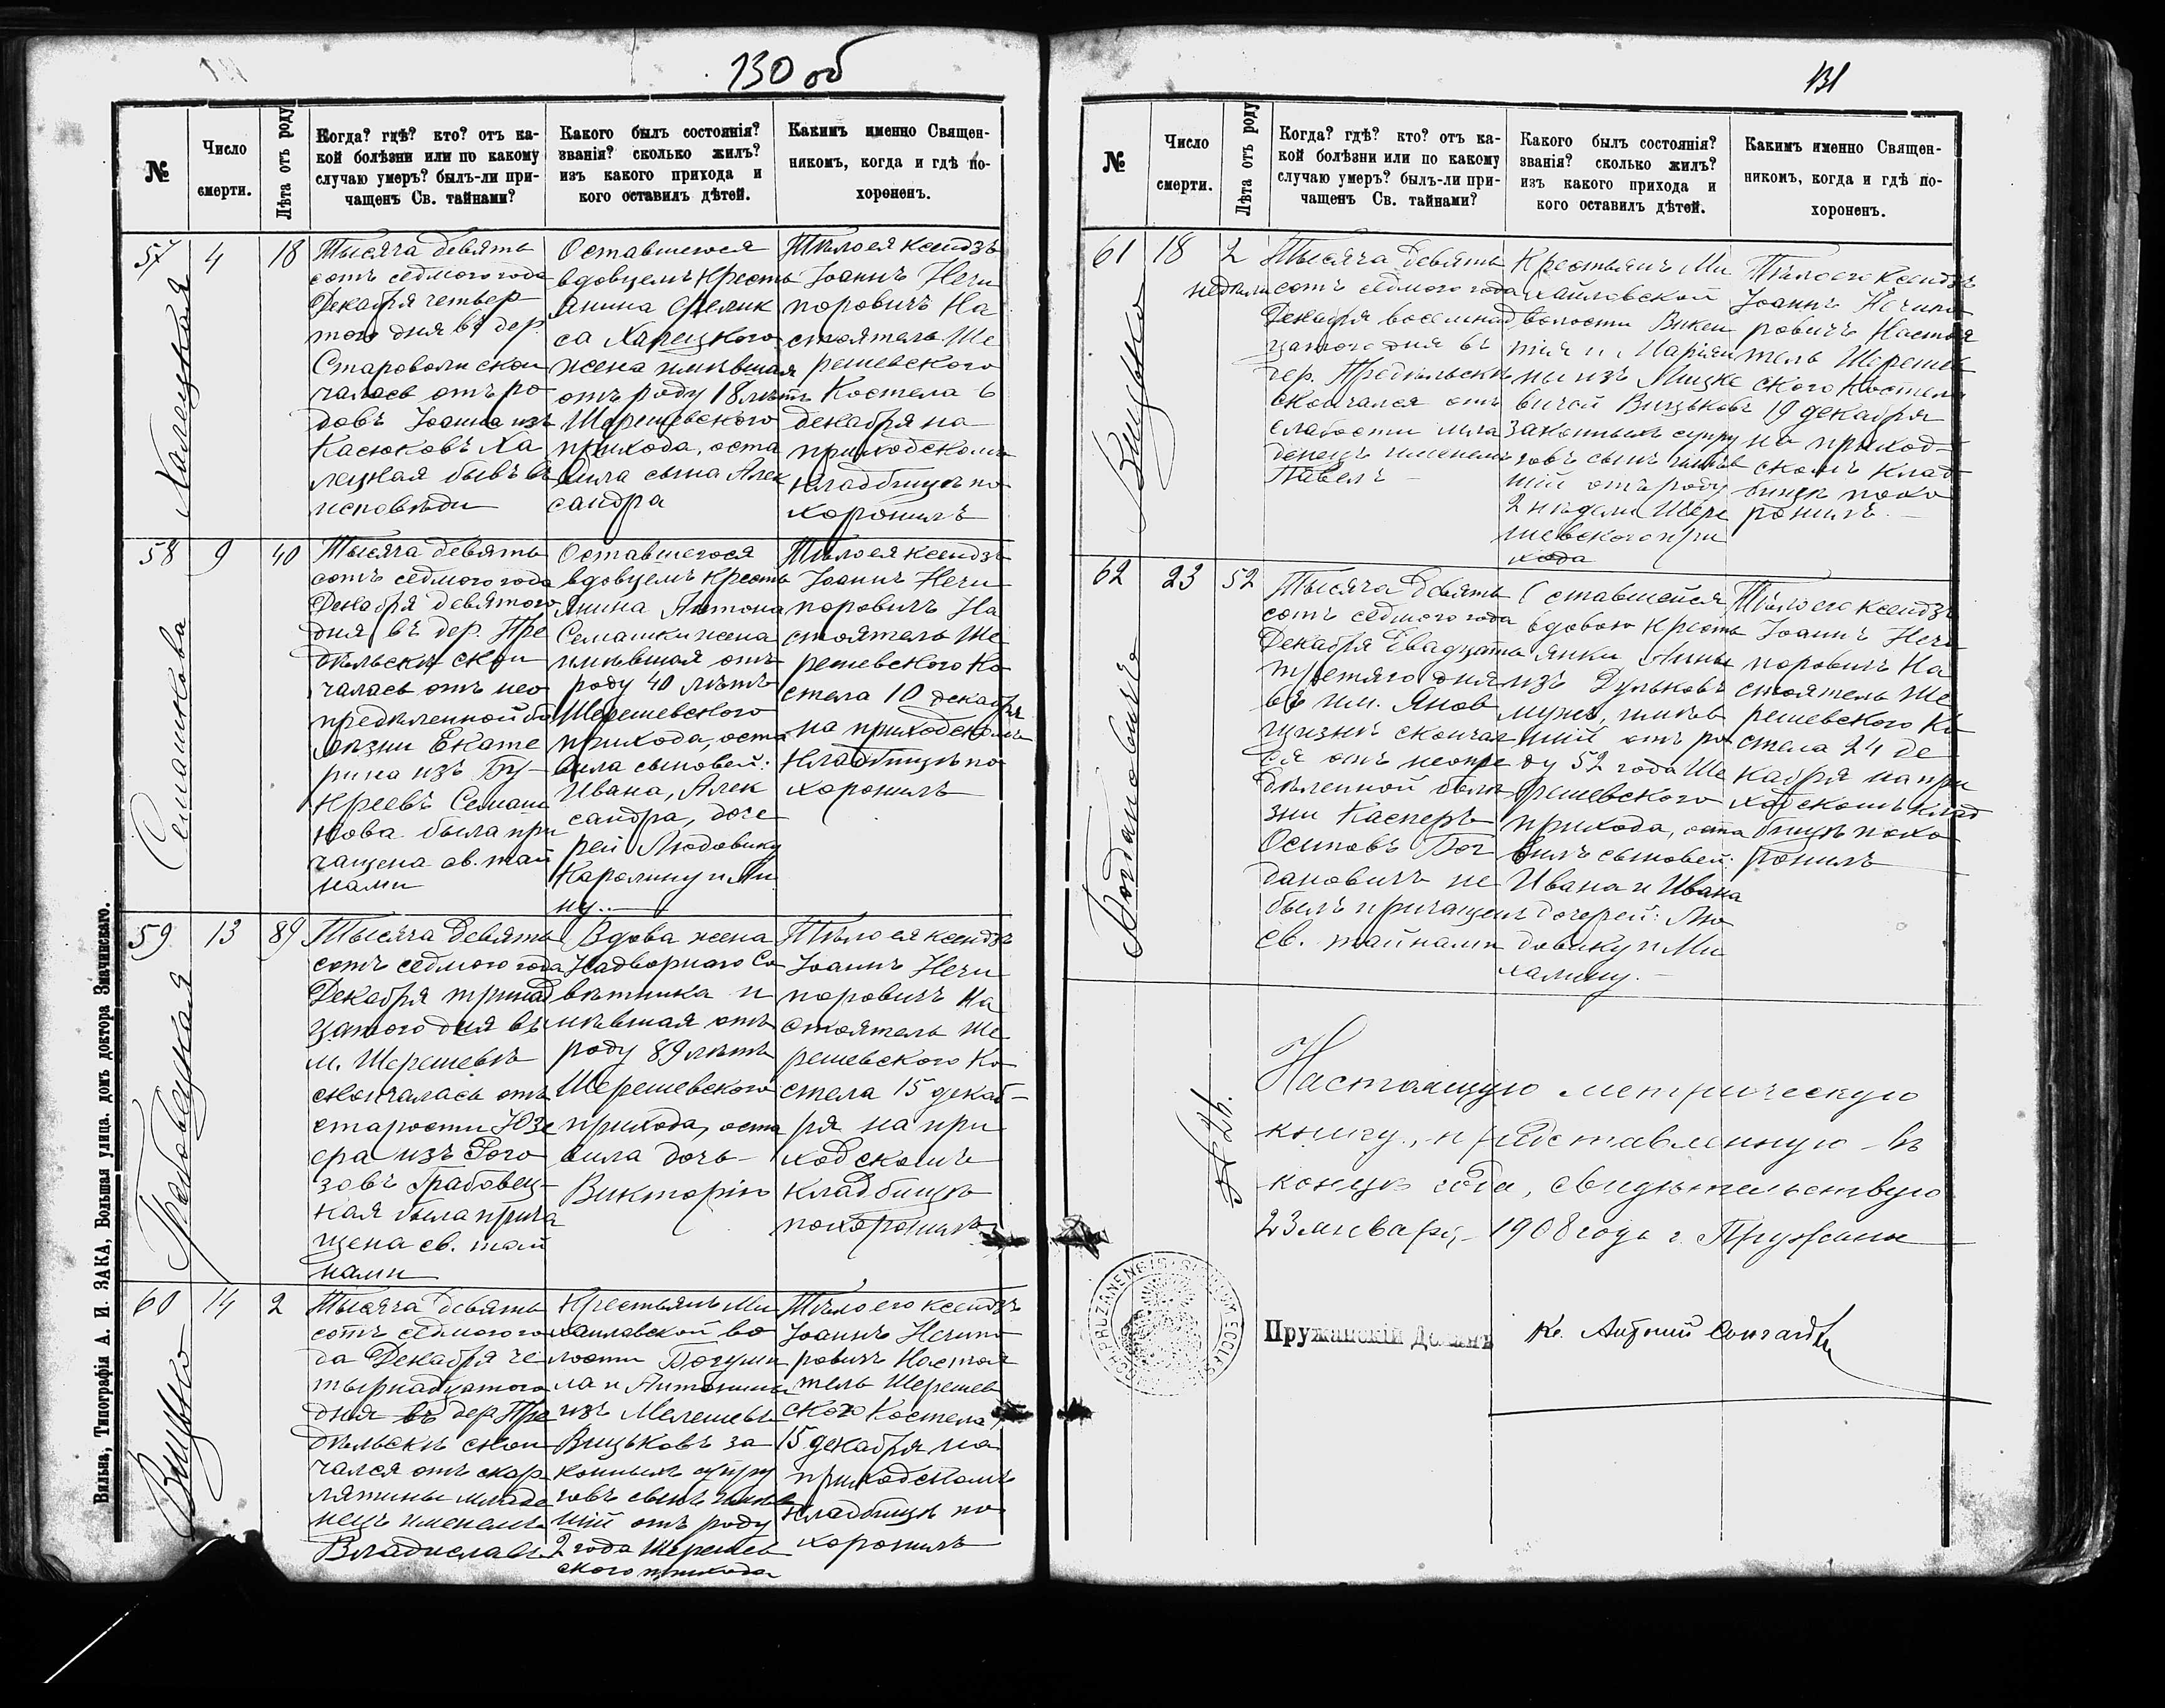 130 об
№
Число
смерти.
Лѣта отъ роду
Когда? гдѣ? кто? отъ ка-
кой болѣзни или по какому
случаю умеръ? былъ-ли при-
чащенъ Св. тайнами?
Какого былъ состоянія?
званія? сколько жилъ?
изъ какого прихода и
кого оставилъ дѣтей.
Какимъ именно Священ-
никомъ, когда и гдѣ по-
хороненъ.
57
4
18
Тысяча девять
сотъ седмого года
Декабря четвер
того дня въ дер.
Староволи скон
чалась отъ ро
довъ Іоанна изъ
Касюковъ Ха
лецкая бывъ въ
исповѣди
Оставшегося
вдовцемъ кресть
янина Фелик
са Харецкого
жена имѣвшая
отъ роду 18 лѣтъ
Шерешевского
прихода, оста
вила сына Алек
сандра
Тѣло ея ксендзъ
Іоаннъ Нечи
поровичъ На
стоятель Ше
решевского
Костела 6
декабря на
приходскомъ
кладбищѣ по
хоронилъ
58
Семашкова
9
40
Тысяча девять
сотъ седмого года
Декабря девятого
дня въ дер. Пре
дѣльскѣ скон
чалась отъ нео
предѣленной бо
лѣзни Екате
рина изъ Бу-
креевъ Семаш
кова была при
чащена св. тай
нами
Оставшегося
вдовцемъ кресть
янина Антона
Семашки жена
имѣвшая отъ
роду 40 лѣтъ
Шерешевского
прихода, оста
вила сыновей:
Ивана, Алек
сандра, доче
рей Людовику
Каролину и Ан
ну.-
Тѣло ея ксендзъ
Іоаннъ Нечи
поровичъ На
стоятель Ше
решевского Ко
стела 10 декабря
на приходскомъ
кладбищѣ по
хоронилъ
59
Грабовецкая
13
89
Тысяча девять
сотъ седмого года
Декабря тринад
цатого дня въ
м. Шерешевѣ
скончалась отъ
старости Юзе
фа изъ Рого
зовъ Грабовец-
кая была прича
щена св. тай
нами
Вдова жена
Надворнаго Со
вѣтника и
мѣвшая отъ
роду 89 лѣтъ
Шерешевского
прихода, оста
вила дочь-
Викторію
Тѣло ея ксендзъ
Іоаннъ Нечи
поровичъ На
стоятель Ше
решевского Ко
стела 15 декаб-
ря на при
ходскомъ
кладбищѣ
похоронилъ
60
Вицько
14
2
Тысяча девять
сотъ седмого го
да Декабря че
тырнадцатого
дня въ дер. Пре
дѣльскѣ скон
чался отъ скар
лятины младе
нецъ именемъ
Владиславъ
Крестьянъ Ми
хайловской во
лости Богуми
ла и Антонины
изъ Мелешевъ
Вицьковъ за
конныхъ супру
говъ сынъ имѣв
шій отъ роду
2 года Шерешев
ского прихода
Тѣло его ксендзъ
Іоаннъ Нечипо
ровичъ Настоя
тель Шерешев
ского Костела
15 декабря на
приходскомъ
кладбищѣ по
хоронилъ
Вильна, Типографія А. И. ЗАКА, Большая улица. домъ доктора Змачинскаго.
131
№
Число
смерти.
Лѣта отъ роду
Когда? гдѣ? кто? отъ ка-
кой болѣзни или по какому
случаю умеръ? былъ-ли при-
чащенъ Св. тайнами?
Какого былъ состоянія?
званія? сколько жилъ?
изъ какого прихода и
кого оставилъ дѣтей.
Какимъ именно Священ-
никомъ, когда и гдѣ по-
хороненъ.
61
Вицько
18
2
недѣли
Тысяча девять
сотъ седмого года
Декабря восемнад
цатого дня въ
дер. Предѣльскѣ
скончался отъ
слабости мла
денецъ именемъ
Павелъ -
Крестьянъ Ми
хайловской
волости Викен
тія и Маріан
ны изъ Мицке
вичей Вицьковъ
законныхъ супру
говъ сынъ имѣв
шій отъ роду
2 недѣли Шере
шевского при
хода
Тѣло его ксендзъ
Іоаннъ Нечипо
ровичъ Настоя
тель Шерешев
ского Костела
19 декабря
на приход-
скомъ клад
бищѣ похо
ронилъ.-
62
Богдановичъ
23
52
Тысяча девять
сотъ седмого года
Декабря двадцать
третяго дня
въ им. Янов
щизнѣ скончал
ся отъ неопре
дѣленной болѣ
зни Касперъ
Осиповъ Бог
дановичъ не
былъ причащенъ
св. тайнами
Оставшейся
вдовою кресть
янки Анны
изъ Дульковъ
мужъ, имѣв
шій отъ ро
ду 52 года Ше
решевского
прихода, оста
вилъ сыновей:
Ивана и Ивана
дочерей: Лю
довику и Ми
халину.-
Тѣло его ксендзъ
Іоаннъ Нечи
поровичъ На
стоятель Ше
решевского Ко
стела 24 де
кабря на при
ходскомъ клад
бищѣ похо
ронилъ
Настоящую метрическую
книгу, представленную въ
концѣ года, свидѣтельствую
23 января, 1908 года г. Пружаны
Пружанскій Деканъ
Кс. Антоній